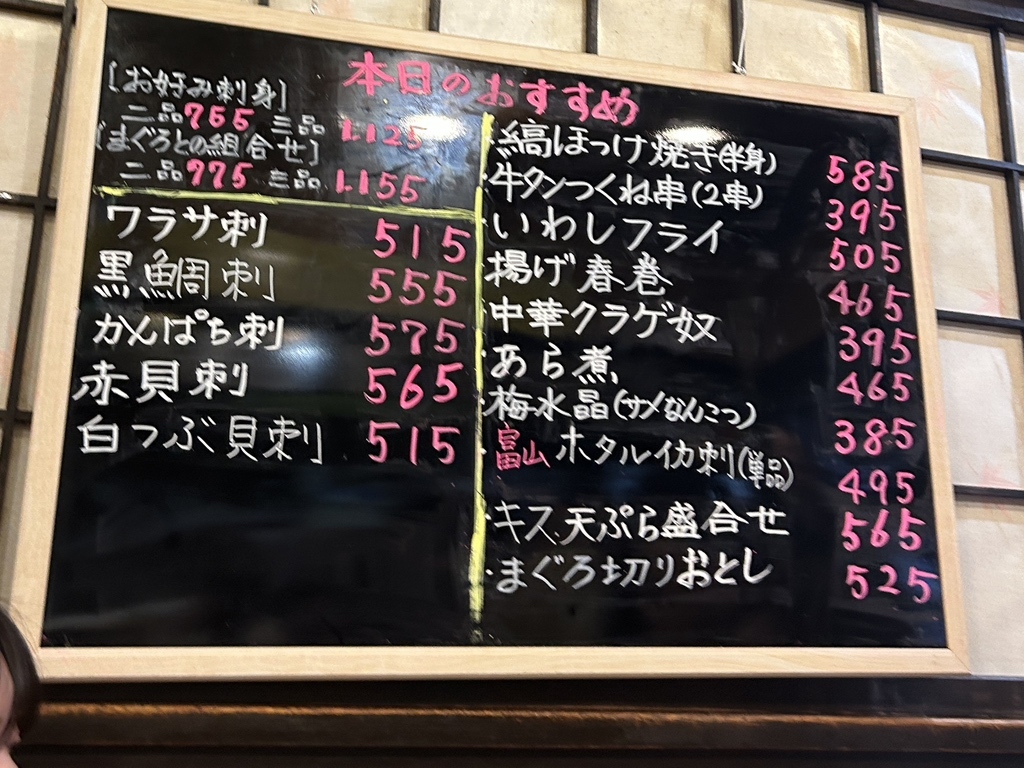 本日のおすすめ
[お好み刺身]
二品765 三品1.125
[まぐろとの組合せ]
二品975 三品1.155
ワラサ刺 515
黒鯛刺 555
かんぱち刺 575
赤貝刺 565
白つぶ貝刺 515
・縞ほっけ焼き(半身) 585
・牛タンつくね串(2串) 395
・いわしフライ 505
・揚げ春巻 465
・中華クラゲ奴 395
・あら煮 465
・梅水晶(サメなんこつ) 385
・富山ホタルイカ刺(単品) 495
・キス天ぷら盛合せ 565
・まぐろ切りおとし 525